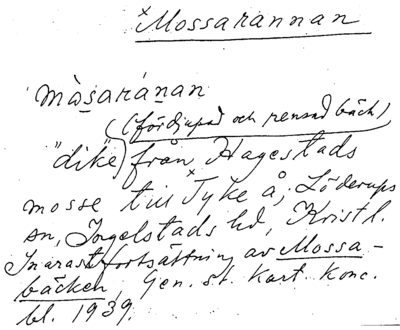 ×Mossarannan
màsaránan
(fördjupad och rensad bäck)
"dike" från Hagestads
mosse till ×Tyke å, Löderups
sn, Ingelstads hd, Kristl.
fortsättning av Mossa-
bäcken, Gen. st. kart. konc.
bl. 1939.